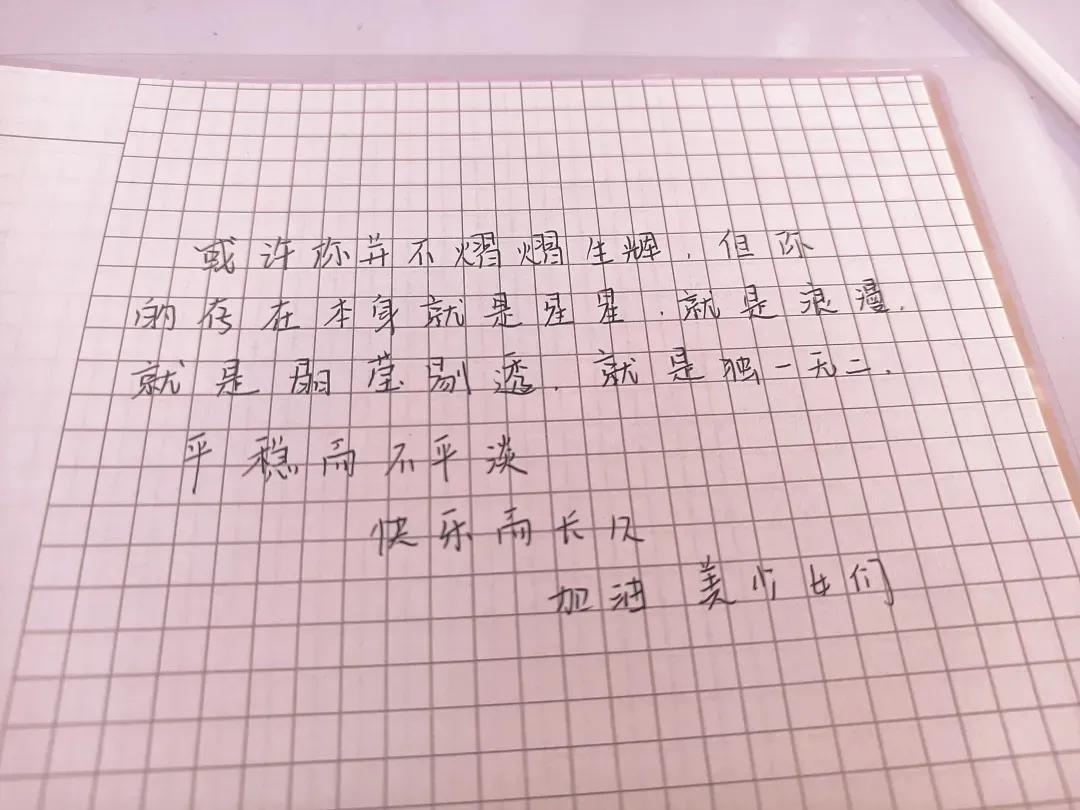 或许你并不熠熠生辉.但你
的存在本身就是星星.就是浪漫.
就是晶莹剔透.就是独一无二.
平稳而不平淡
快乐而长久
加油 美少女们